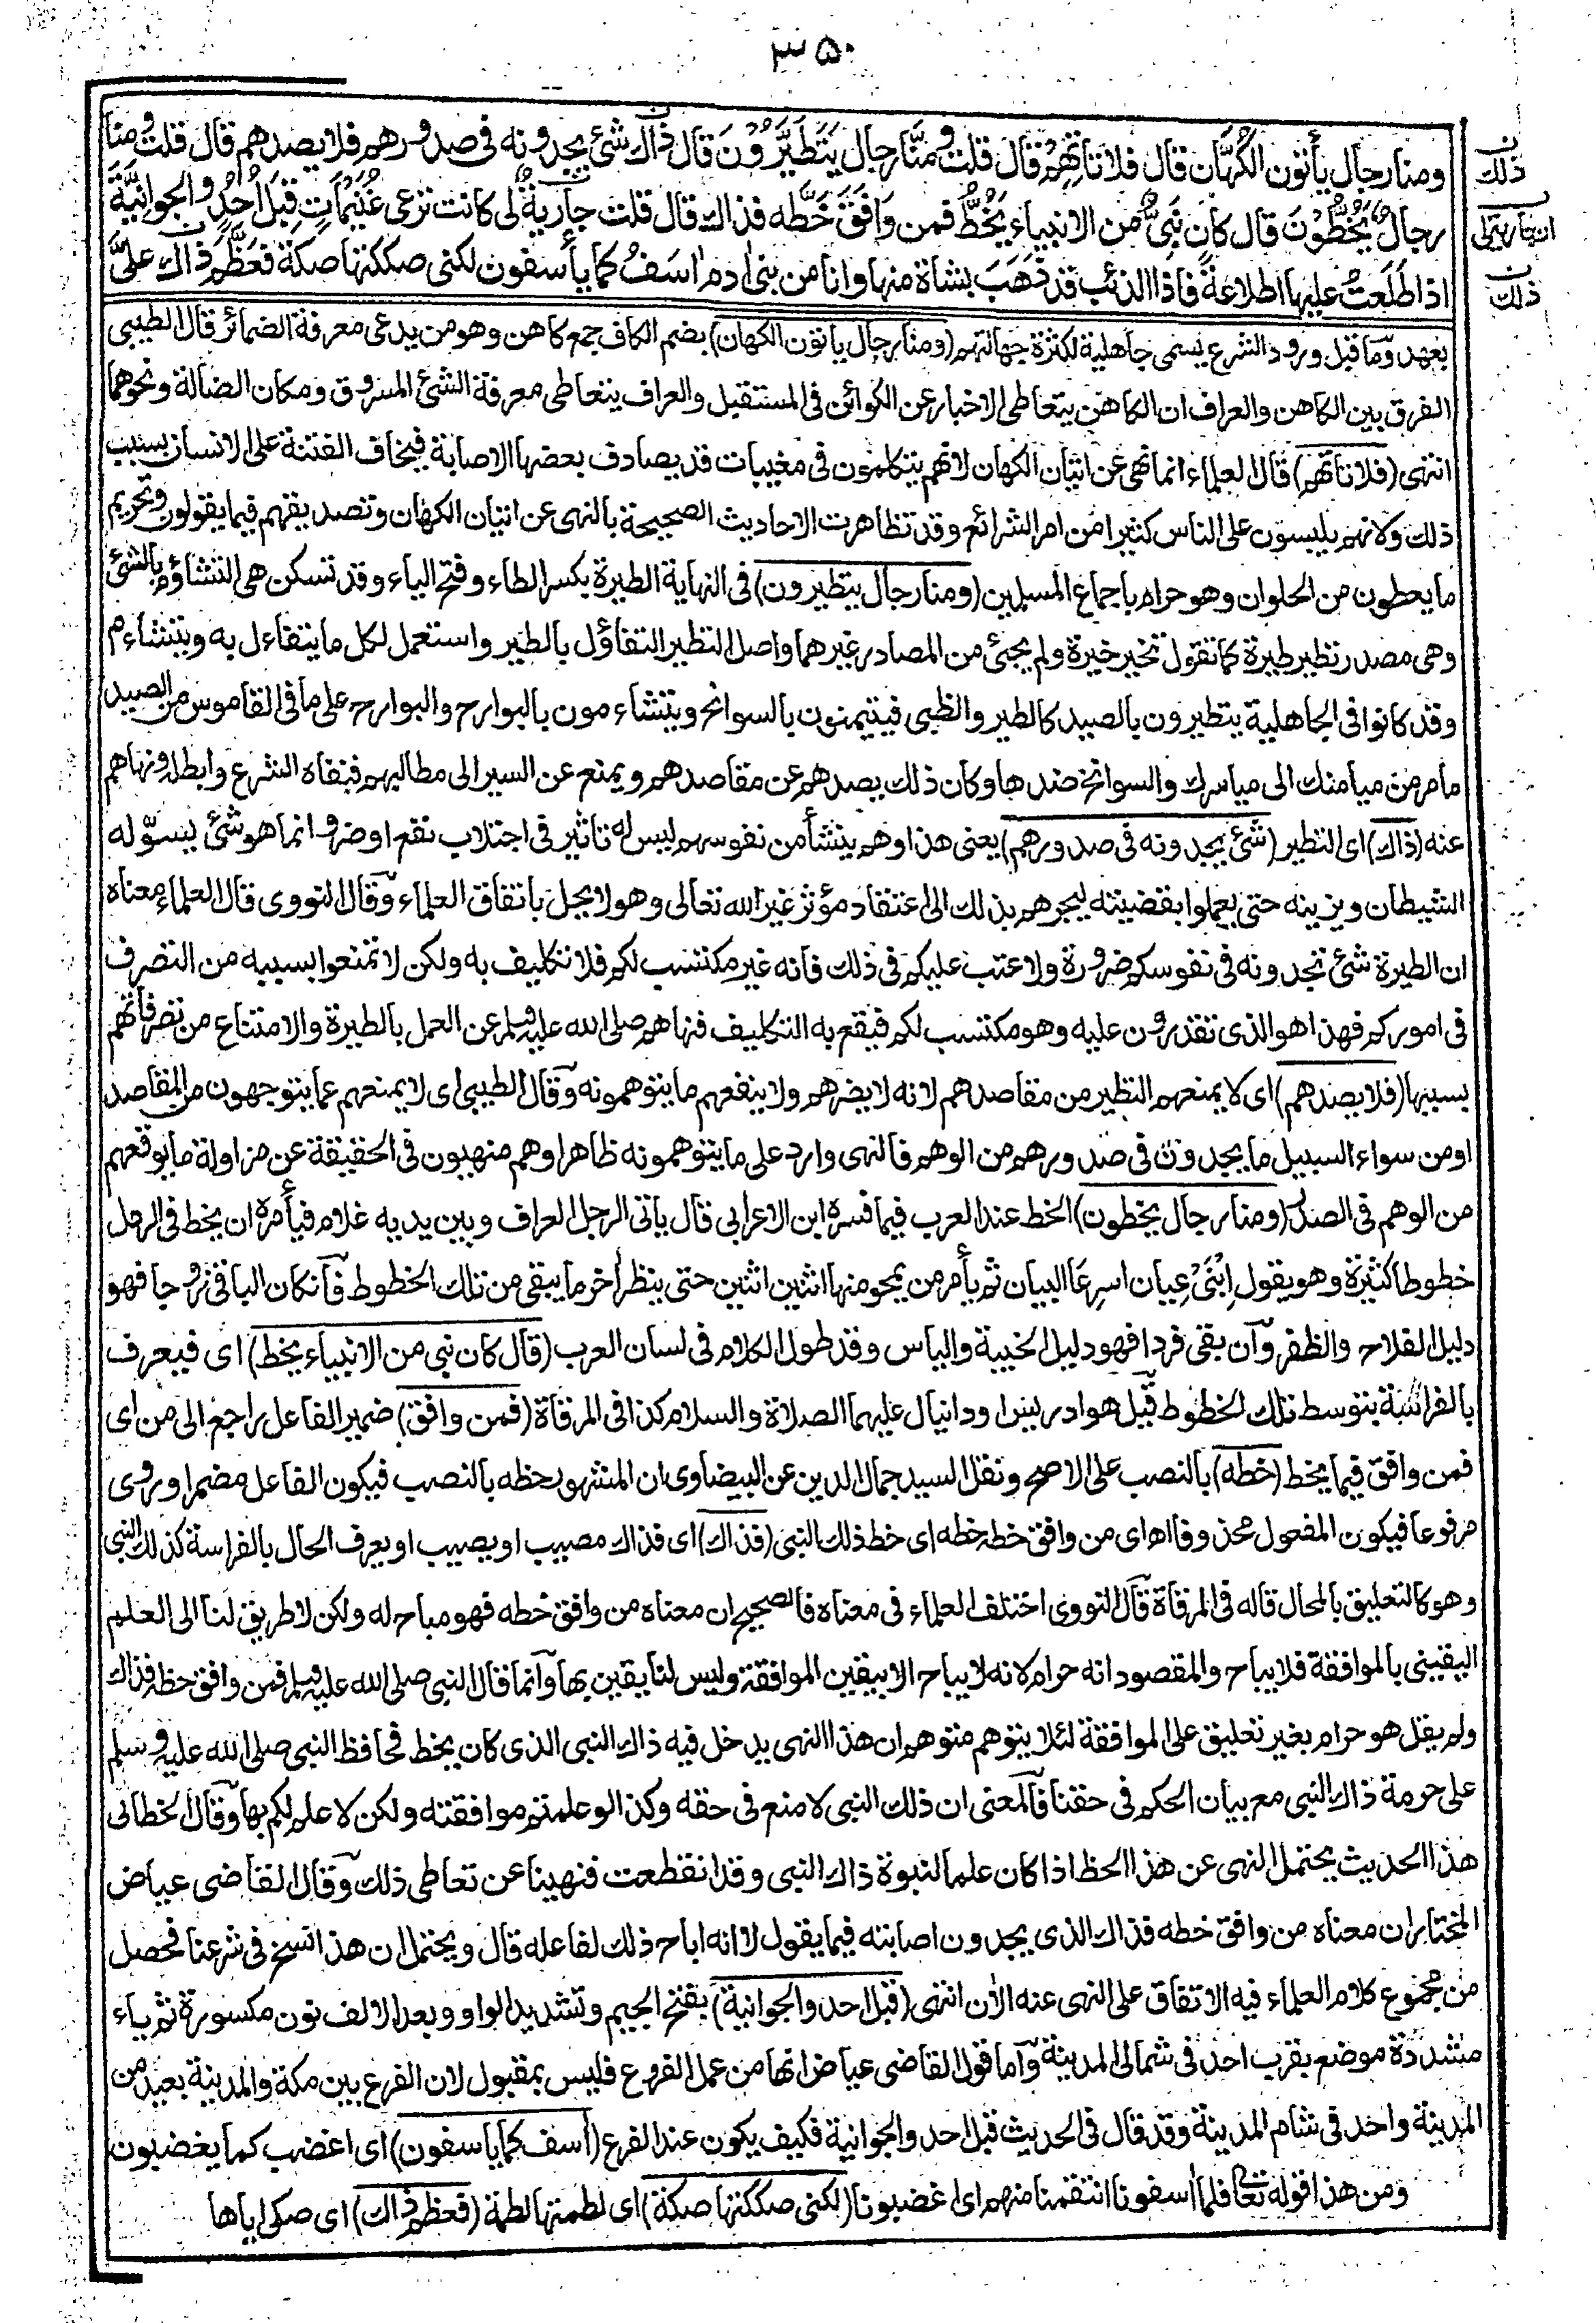 ۳۵۰
ومنا رجال يأتون الكُهَّان قال فلا تاتهم قال قلت ومنَّا رجال يَتَطَيَّرُوْنَ قال ذاك شئ يجدونه فى صدورهم فلا يصدهم قال قلت ومنا
رجالٌ يَخُطُّوْنَ قال كان نَبِىٌّ من الانبياء يَخُطُّ فمن وَافَقَ خَطَّه فذاك قال قلت جاريةٌ لى كانت ترعى غُنَيْمَاتٍ قِبَلَ اُحُدٍ والجوانِيَّة
اذ اطَّلَعتُ عليها اطلاعةً فاذا الذئب قد ذَهَبَ بشاة منها وانا من بنى ادم اٰسَفُ كما يأسفون لكنى صككتها صكة فعَظَّمَ ذاك علىَّ
ن ذلك
ان جارية لى
ن ذلك
بعهد وما قبل ورود الشرع يسمى جاهلية لكثرة جهالتهم (ومنا رجال ياتون الكهان) بضم الكاف جمع كاهن وهو من يدعى معرفة الضمائر قال الطيبى
الفرق بين الكاهن والعراف ان الكاهن يتعاطى الاخبار عن الكوائن فى المستقبل والعراف يتعاطى معرفة الشئ المسروق ومكان الضالة ونحوهما
انتهى (فلا تاتهم) قال العلماء انما نهى عن اتيان الكهان لانهم يتكلمون فى مغيبات قد يصادف بعضها الاصابة فيخاف الفتنة على الانسان بسبب
ذلك ولانهم يلبسون على الناس كثيرا من امر الشرائع وقد تظاهرت الاحاديث الصحيحة بالنهى عن اتيان الكهان وتصديقهم فيما يقولون وتحريم
ما يعطون من الحلوان وهو حرام باجماع المسلمين (ومنا رجال يتطيرون) فى النهاية الطيرة بكسر الطاء وفتح الياء وقد تسكن هى التشاؤم بالشئ
وهى مصدر تطير طيرة كما تقول تخير خيرة ولم يجئ من المصادر غيرهما واصل التطير التفاؤل بالطير واستعمل لكل ما يتفاءل به ويتشاءم
وقد كانوا فى الجاهلية يتطيرون بالصيد كالطير والظبى فيتيمنون بالسوانح ويتشاءمون بالبوارح والبوارح على ما فى القاموس من الصيد
ما مر من ميامنك الى مياسرك والسوانح ضدها وكان ذلك يصدهم عن مقاصدهم ويمنع عن السير الى مطالبهم فنفاه الشرع وابطله ونهاهم
عنه (ذاك) اى التطير (شئ يجدونه فى صدورهم) يعنى هذا وهم ينشأ من نفوسهم ليس له تاثير فى اجتلاب نفع او ضر وانما هو شئ يسوّله
الشيطان ويزينه حتى يعملوا بقضيته ليجرهم بذلك الى اعتقاد مؤثر غير الله تعالى وهو لا يحل باتفاق العلماء وقال النووى قال العلماء معناه
ان الطيرة شئ تجدونه فى نفوسكم ضرورة ولا عتب عليكم فى ذلك فانه غير مكتسب لكم فلا تكليف به ولكن لا تمتنعوا بسببه من التصرف
فى اموركم فهذا هو الذى تقدرون عليه وهو مكتسب لكم فيقع به التكليف فنهاهم صلى الله عليه وسلم عن العمل بالطيرة والامتناع من تصرفاتهم
بسببها (فلا يصدهم) اى لا يمنعهم التطير من مقاصدهم لانه لا يضرهم ولا ينفعهم ما يتوهمونه وقال الطيبى اى لا يمنعهم عما يتوجهون من المقاصد
او من سواء السبيل ما يجدون فى صدورهم من الوهم فالنهى وارد على ما يتوهمونه ظاهرا وهم منهيون فى الحقيقة عن مزاولة ما يوقعهم
من الوهم فى الصدر (ومنا رجال يخطون) الخط عند العرب فيما فسره ابن الاعرابى قال ياتى الرجل العراف وبين يديه غلام فيأمره ان يخط فى الرمل
خطوطا كثيرة وهو يقول اِبْنَىْ عِيان اسرِعَا البيان ثم يأمر من يمحو منها اثنين اثنين حتى ينظر اٰخر ما يبقى من تلك الخطوط فان كان الباقى زوجا فهو
دليل الفلاح والظفر وان بقى فردا فهو دليل الخيبة والياس وقد طول الكلام فى لسان العرب (قال كان نبى من الانبياء يخط) اى فيعرف
بالفراسة بتوسط تلك الخطوط قيل هو ادريس او دانيال عليهما الصلاة والسلام كذا فى المرقاة (فمن وافق) ضمير الفاعل راجع الى من اى
فمن وافق فيما يخط (خطه) بالنصب على الاصح ونقل السيد جمال الدين عن البيضاوى ان المشهور خطه بالنصب فيكون الفاعل مضمرا وروى
مرفوعا فيكون المفعول محذوفا اه اى من وافق خطه خطه اى خط ذلك النبى (فذاك) اى فذاك مصيب او يصيب او يعرف الحال بالفراسة كذلك النبى
وهو كالتعليق بالمحال قاله فى المرقاة قال النووى اختلف العلماء فى معناه فالصحيح ان معناه من وافق خطه فهو مباح له ولكن لا طريق لنا الى العلم
اليقينى بالموافقة فلا يباح والمقصود انه حرام لانه لا يباح الا بيقين الموافقة وليس لنا يقين بها وانما قال النبى صلى الله عليه وسلم فمن وافق خطه فذاك
ولم يقل هو حرام بغير تعليق على الموافقة لئلا يتوهم متوهم ان هذا النهى يدخل فيه ذاك النبى الذى كان يخط فحافظ النبى صلى الله عليه وسلم
على حرمة ذاك النبى مع بيان الحكم فى حقنا فالمعنى ان ذلك النبى لا منع فى حقه وكذا لو علمتم موافقته ولكن لا علم لكم بها وقال الخطابى
هذا الحديث يحتمل النهى عن هذا الخط اذا كان علما لنبوة ذاك النبى وقد انقطعت فنهينا عن تعاطى ذلك وقال القاضى عياض
المختار ان معناه من وافق خطه فذاك الذى يجدون اصابته فيما يقول لا انه اباح ذلك لفاعله قال ويحتمل ان هذا نسخ فى شرعنا فحصل
من مجموع كلام العلماء فيه الاتفاق على النهى عنه الاٰن انتهى (قبل احد والجوانية) بفتح الجيم وتشديد الواو وبعد الالف نون مكسورة ثم ياء
مشددة موضع بقرب احد فى شمالى المدينة واما قول القاضى عياض انها من عمل الفروع فليس بمقبول لان الفرع بين مكة والمدينة بعيد من
المدينة واحد فى شام المدينة وقد قال فى الحديث قبل احد والجوانية فكيف يكون عند الفرع (أسف كما ياسفون) اى اغضب كما يغضبون
ومن هذا قوله تعالى فلما اٰسفونا انتقمنا منهم اى اغضبونا (لكنى صككتها صكة) اى لطمتها لطمة (فعظم ذاك) اى صكى اياها